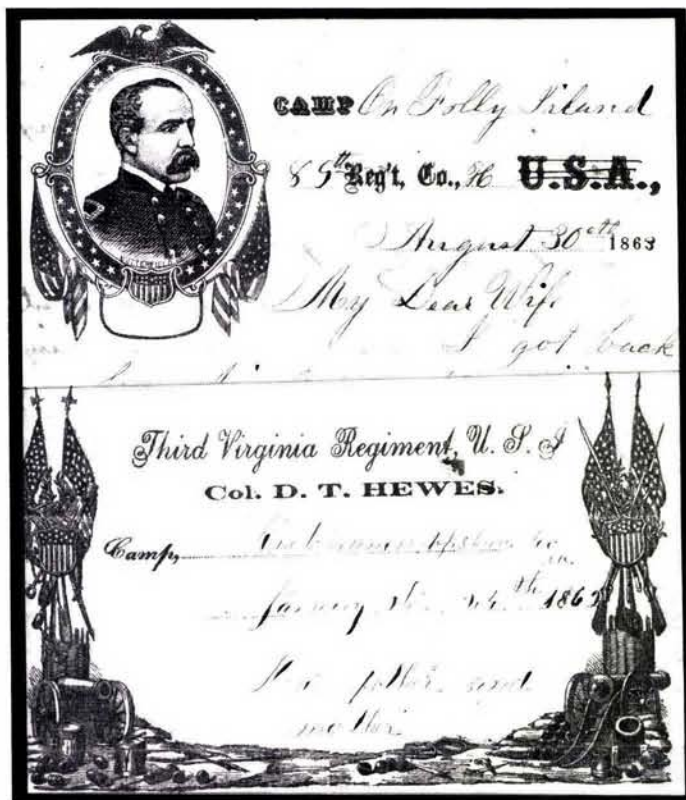 CAMP On Folly Island
85th Reg't, Co., H U.S.A.,
August 30th 1863
My Dear Wife
I got back
Third Virginia Regiment, U. S. J
Col. D. T. HEWES.
Camp, Upshur Co
24th 1862
father and
mother